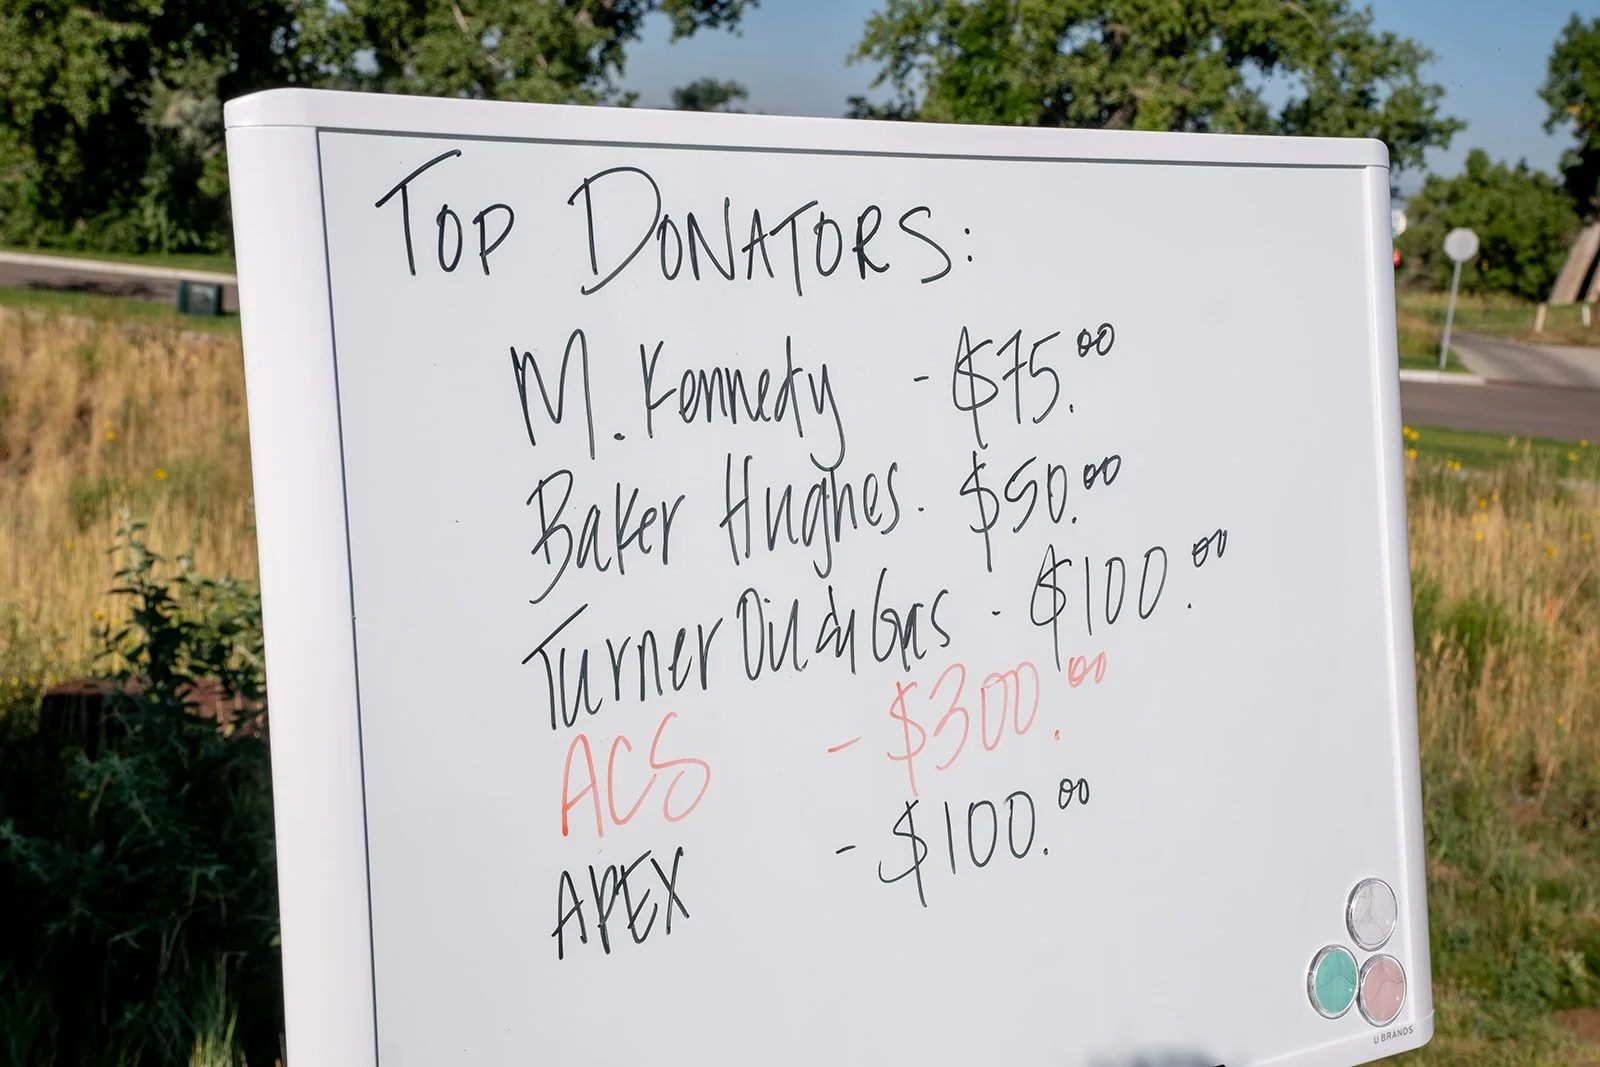 TOP DONATORS:
M. Kennedy - $75.00
Baker Hughes. $50.00
Turner Oil & Gas - $100.00
ACS - $300.00
APEX - $100.00
U BRANDS